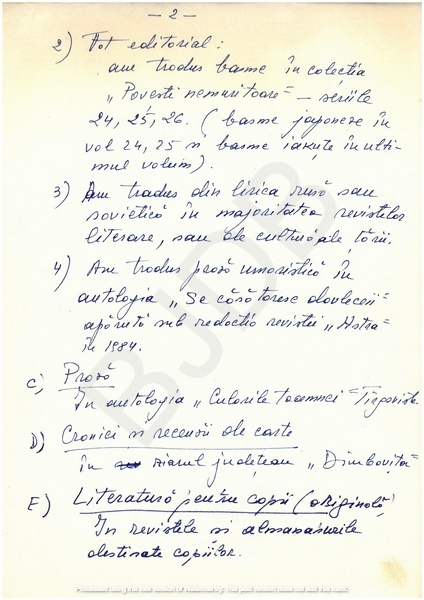 — 2 —
2) Tot editorial:
am tradus basme în colecția
„Povești nemuritoare" – seriile
24, 25, 26. (basme japoneze în
vol 24, 25 și basme iakute în ulti-
mul volum).
3) Am tradus din lirica rusă sau
sovietică în majoritatea revistelor
literare, sau de cultură, ale țării.
4) Am tradus proză umoristică în
antologia „Se căsătoresc dovlecii"
apărută sub redacția revistei „Astra"
în 1984.
C) Proză
În antologia „Culorile toamnei" Tîrgoviște
D) Cronici și recenzii de carte
în ziarul județean „Dîmbovița"
E) Literatură pentru copii (originală)
În revistele și almanahurile
destinate copiilor.
BJDB